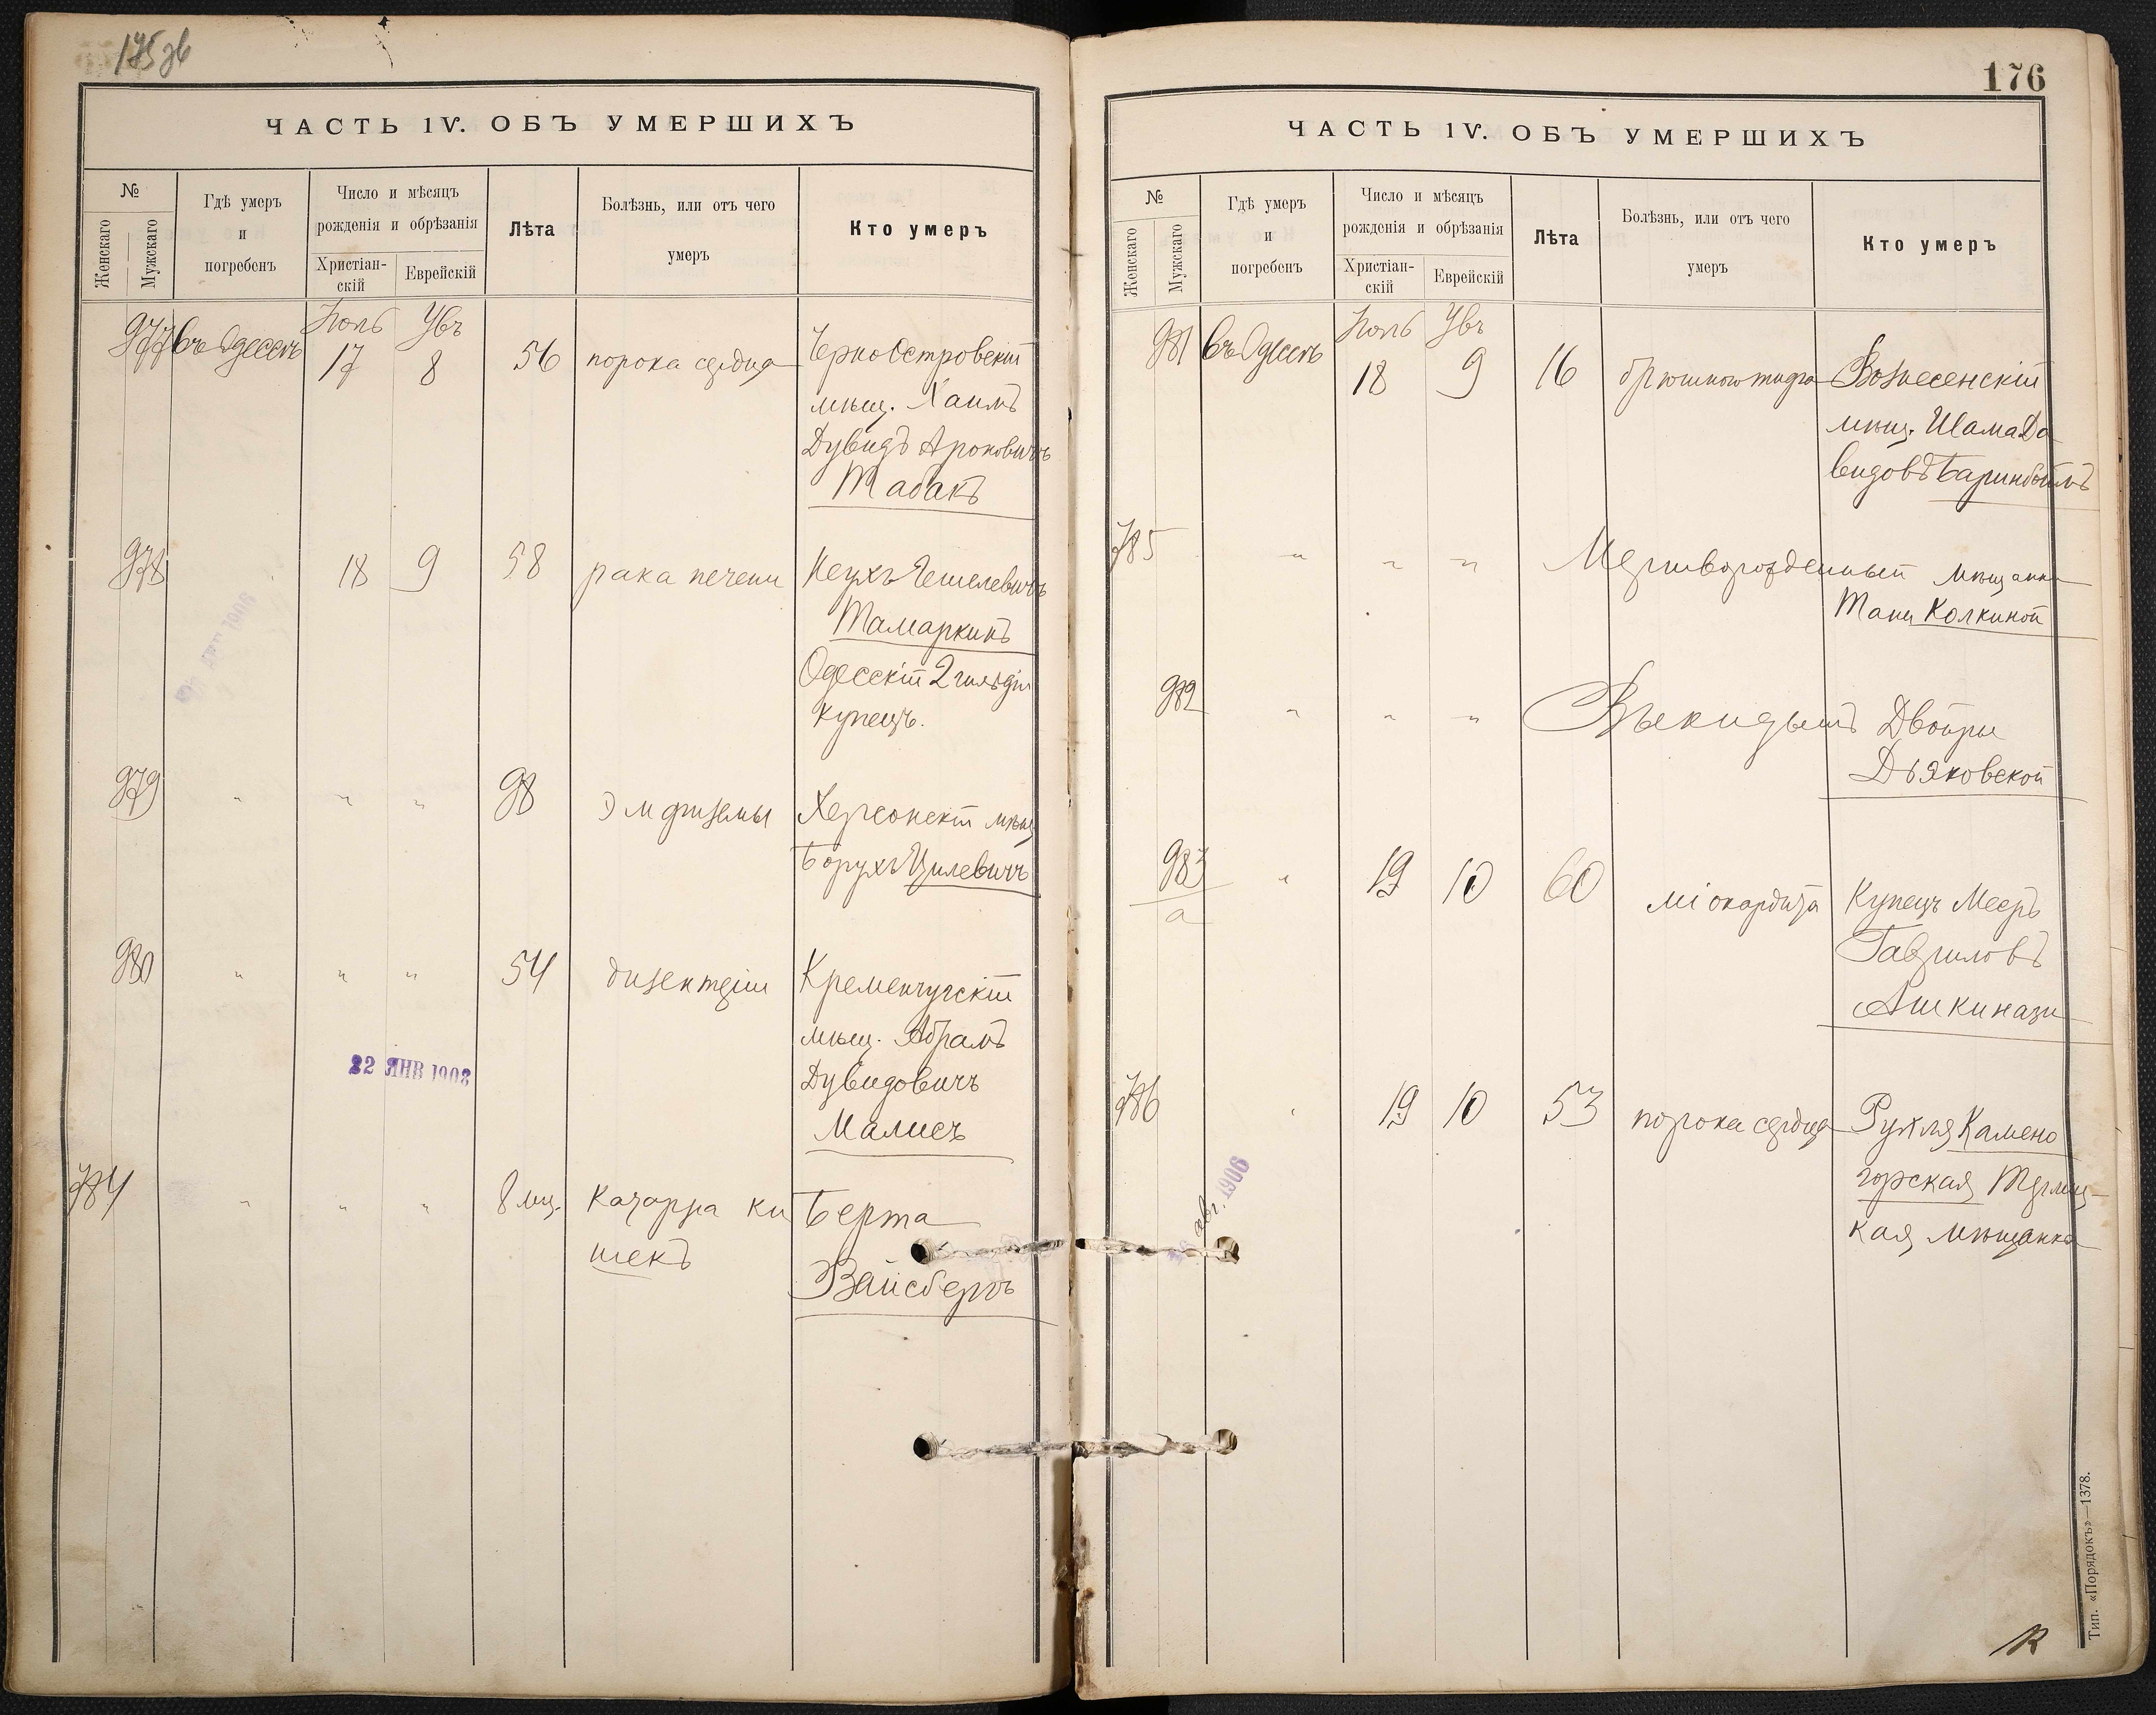 175 об
ЧАСТЬ IV. ОБЪ УМЕРШИХЪ
№
Женскаго
Мужскаго
Гдѣ умеръ
и
погребенъ
Число и мѣсяцъ
рожденія и обрѣзанія
Христіан-
скій
Еврейскій
Лѣта
Болѣзнь, или отъ чего
умеръ
Кто умеръ
Іюль Увъ
977 въ Одессѣ 17 8 56 порока сердца ЧерноОстровскій
мѣщ. Хаимъ
Дувидъ Ароновичъ
Табакъ
978 18 9 58 рака печени
Тамаркинъ
Одесскій 2 гильдіи
купецъ.
979 " " " 98 Эмфиземы Херсонскій мѣщ
Борухъ Цилевичъ
980 " " " 54 дизентеріи Кременчугскій
мѣщ. Абрамъ
Дувидовичъ
Малисъ
22 ЯНВ 1903
784 " " " 8 мц. Катарра ки Берта
шекъ
Вайсбергъ
176
ЧАСТЬ IV. ОБЪ УМЕРШИХЪ
№
Женскаго
Мужскаго
Гдѣ умеръ
и
погребенъ
Число и мѣсяцъ
рожденія и обрѣзанія
Христіан-
скій
Еврейскій
Лѣта
Болѣзнь, или отъ чего
умеръ
Кто умеръ
Іюль Увъ
981 въ Одессѣ 18 9 16 брюшного тифа Вознесенскій
мѣщ. Шама Да
видовъ Баринбоймъ
785 " " " Мертворожденный мѣщанки
Тани Колкиной
982 " " " Выкидышъ Двойры
Дьяковской
983 " 19 10 60 міокардита Купецъ Мееръ
а
Гавриловъ
Ашкинази
786 " 19 10 53 порока сердца Рухля Камено
горская
кая мѣщанка
авг. 1906
Тип. «Порядокъ»—1378.